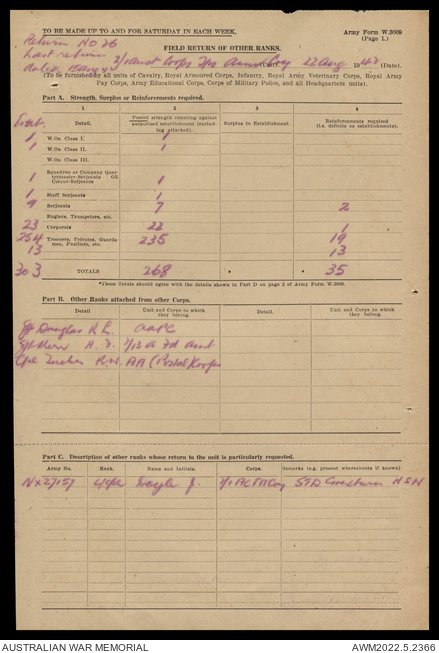 TO BE MADE UP TO AND FOR SATURDAY IN EACH WEEK.
Army Form W.3009
(Page 1.)
Return No 26
FIELD RETURN OF OTHER RANKS.
Last return
2/1 Aust Corps (Unit) 22 Aug 1942 (Date).
(To be furnished by all units of Cavalry, Royal Armoured Corps, Infantry, Royal Army Veterinary Corps, Royal Army
Pay Corps, Army Educational Corps, Corps of Military Police, and all Headquarters units).
Part A. Strength, Surplus or Reinforcements required.
1 2 3 4
Detail. Posted strength counting against authorised establishment (excluding attached). Surplus to Establishment. Reinforcements required (i.e. deficits on establishments).
1 W.Os. Class I. 1
1 W.Os. Class II. 1
W.Os. Class III.
1 Squadron or Company Quartermaster-Serjeants OR Colour-Serjeants 1
1 Staff Serjeants 1
9 Serjeants 7 2
Buglers, Trumpeters, etc.
23 Corporals 22 1
254 Troopers, Privates, Guardsmen, Fusiliers, etc. 235 19
13 13
303 TOTALS 268 * * 35
*These Totals should agree with the details shown in Part D on page 2 of Army Form W.3009.
Part B. Other Ranks attached from other Corps.
Detail Unit and Corps to which they belong. Detail. Unit and Corps to which they belong.
Douglas R L. AAPC
H. J. 2/13 A Fd
Cpl R.W. AA (Postal) Corps
Part C. Description of other ranks whose return to the unit is particularly requested.
Army No. Rank. Name and Initials. Corps. Remarks (e.g. present whereabouts if known)
NX27157 Doyle J. NSW
AUSTRALIAN WAR MEMORIAL
AWM2022.5.2366